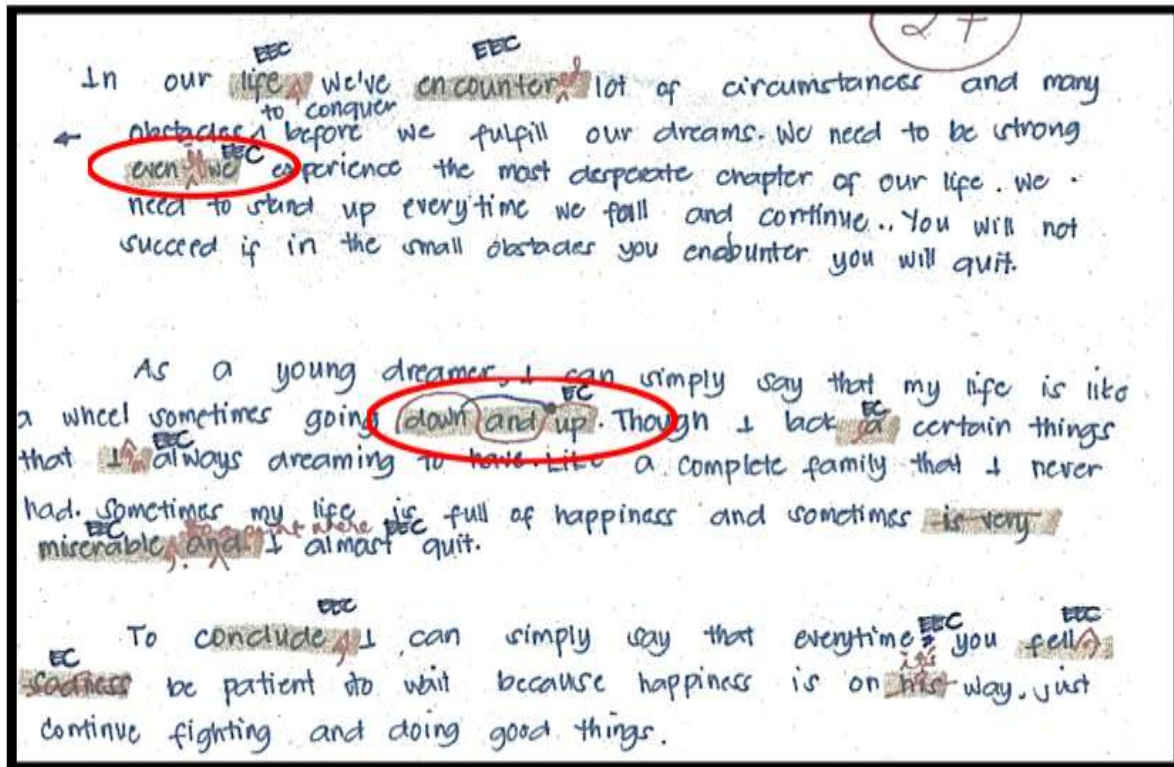 27
EEC EEC
In our life, we've encountered lot of circumstances and many
to conquer
obstacles ^ before we fulfill our dreams. We need to be strong
EEC
even if we experience the most desperate chapter of our life. We
need to stand up everytime we fall and continue.. You will not
succeed if in the small obstacles you encounter you will quit.
As a young dreamer, I can simply say that my life is like
EC
a wheel sometimes going down and up. Though I lack a certain things
EC
EEC
that I always dreaming to have. Like a complete family that I never
had. Sometimes my life is full of happiness and sometimes is very
EEC point where EEC
miserable, and I almost quit.
EEC
To conclude, I can simply say that everytime you fell
EEC EEC
EC
sadness be patient to wait because happiness is on his way. just
continue fighting and doing good things.